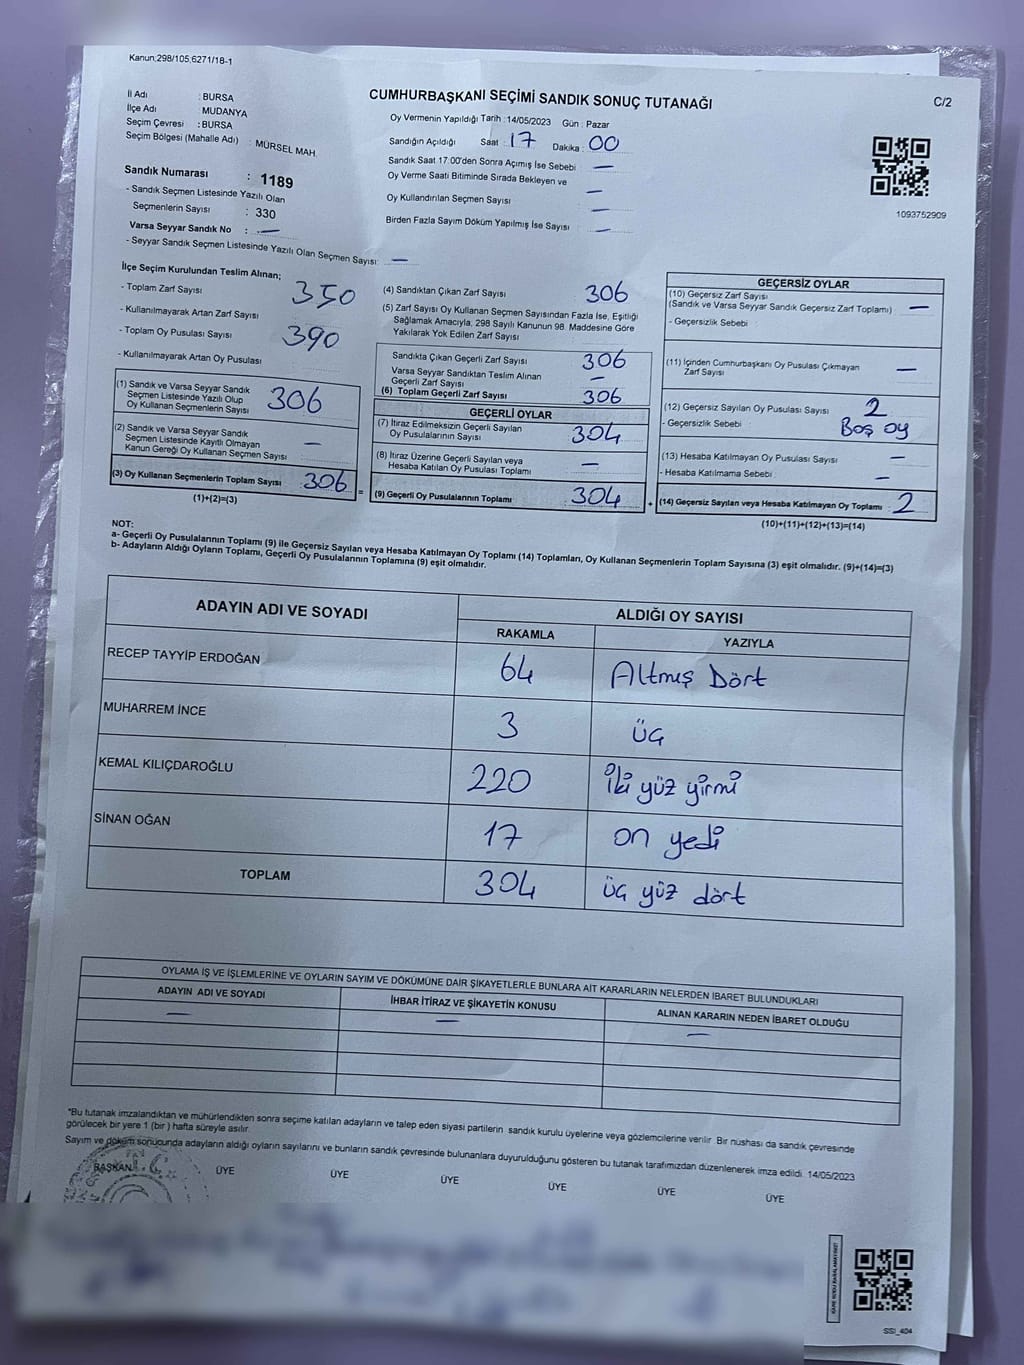 Kanun:298/105,6271/18-1
C/2
CUMHURBAŞKANI SEÇİMİ SANDIK SONUÇ TUTANAĞI
İl Adı : BURSA
İlçe Adı : MUDANYA
Seçim Çevresi : BURSA
Seçim Bölgesi (Mahalle Adı) : MÜRSEL MAH.
Sandık Numarası : 1189
- Sandık Seçmen Listesinde Yazılı Olan
Seçmenlerin Sayısı : 330
Varsa Seyyar Sandık No : —
- Seyyar Sandık Seçmen Listesinde Yazılı Olan Seçmen Sayısı: —
Oy Vermenin Yapıldığı Tarih :14/05/2023 Gün : Pazar
Sandığın Açıldığı Saat : 17 Dakika : 00
Sandık Saat 17:00'den Sonra Açımış İse Sebebi : —
Oy Verme Saati Bitiminde Sırada Bekleyen ve —
Oy Kullandırılan Seçmen Sayısı : —
Birden Fazla Sayım Döküm Yapılmış İse Sayısı : —
1093752909
İlçe Seçim Kurulundan Teslim Alınan;
- Toplam Zarf Sayısı 350
- Kullanılmayarak Artan Zarf Sayısı
- Toplam Oy Pusulası Sayısı 390
- Kullanılmayarak Artan Oy Pusulası
(1) Sandık ve Varsa Seyyar Sandık
Seçmen Listesinde Yazılı Olup
Oy Kullanan Seçmenlerin Sayısı 306
(2) Sandık ve Varsa Seyyar Sandık
Seçmen Listesinde Kayıtlı Olmayan
Kanun Gereği Oy Kullanan Seçmen Sayısı —
(3) Oy Kullanan Seçmenlerin Toplam Sayısı 306
(1)+(2)=(3)
(4) Sandıktan Çıkan Zarf Sayısı 306
(5) Zarf Sayısı Oy Kullanan Seçmen Sayısından Fazla İse, Eşitliği
Sağlamak Amacıyla, 298 Sayılı Kanunun 98. Maddesine Göre
Yakılarak Yok Edilen Zarf Sayısı
Sandıkta Çıkan Geçerli Zarf Sayısı 306
Varsa Seyyar Sandıktan Teslim Alınan
Geçerli Zarf Sayısı —
(6) Toplam Geçerli Zarf Sayısı 306
=
GEÇERLİ OYLAR
(7) İtiraz Edilmeksizin Geçerli Sayılan
Oy Pusulalarının Sayısı 304
(8) İtiraz Üzerine Geçerli Sayılan veya
Hesaba Katılan Oy Pusulası Toplamı —
(9) Geçerli Oy Pusulalarının Toplamı 304
+
GEÇERSİZ OYLAR
(10) Geçersiz Zarf Sayısı
(Sandık ve Varsa Seyyar Sandık Geçersiz Zarf Toplamı) —
- Geçersizlik Sebebi
(11) İçinden Cumhurbaşkanı Oy Pusulası Çıkmayan
Zarf Sayısı —
(12) Geçersiz Sayılan Oy Pusulası Sayısı : 2
- Geçersizlik Sebebi : Boş oy
(13) Hesaba Katılmayan Oy Pusulası Sayısı : —
- Hesaba Katılmama Sebebi : —
(14) Geçersiz Sayılan veya Hesaba Katılmayan Oy Toplamı : 2
(10)+(11)+(12)+(13)=(14)
NOT:
a- Geçerli Oy Pusulalarının Toplamı (9) ile Geçersiz Sayılan veya Hesaba Katılmayan Oy Toplamı (14) Toplamları, Oy Kullanan Seçmenlerin Toplam Sayısına (3) eşit olmalıdır. (9)+(14)=(3)
b- Adayların Aldığı Oyların Toplamı, Geçerli Oy Pusulalarının Toplamına (9) eşit olmalıdır.
ADAYIN ADI VE SOYADI
ALDIĞI OY SAYISI
RAKAMLA YAZIYLA
RECEP TAYYİP ERDOĞAN 64 Altmış Dört
MUHARREM İNCE 3 üç
KEMAL KILIÇDAROĞLU 220 iki yüz yirmi
SİNAN OĞAN 17 on yedi
TOPLAM 304 üç yüz dört
OYLAMA İŞ VE İŞLEMLERİNE VE OYLARIN SAYIM VE DÖKÜMÜNE DAİR ŞİKAYETLERLE BUNLARA AİT KARARLARIN NELERDEN İBARET BULUNDUKLARI
ADAYIN ADI VE SOYADI İHBAR İTİRAZ VE ŞİKAYETİN KONUSU ALINAN KARARIN NEDEN İBARET OLDUĞU
— — —
*Bu tutanak imzalandıktan ve mühürlendikten sonra seçime katılan adayların ve talep eden siyasi partilerin sandık kurulu üyelerine veya gözlemcilerine verilir. Bir nüshası da sandık çevresinde
görülecek bir yere 1 (bir ) hafta süreyle asılır.
Sayım ve döküm sonucunda adayların aldığı oyların sayılarını ve bunların sandık çevresinde bulunanlara duyurulduğunu gösteren bu tutanak tarafımızdan düzenlenerek imza edildi. 14/05/2023
BAŞKAN ÜYE ÜYE ÜYE ÜYE ÜYE ÜYE
T.C.
SSI_404